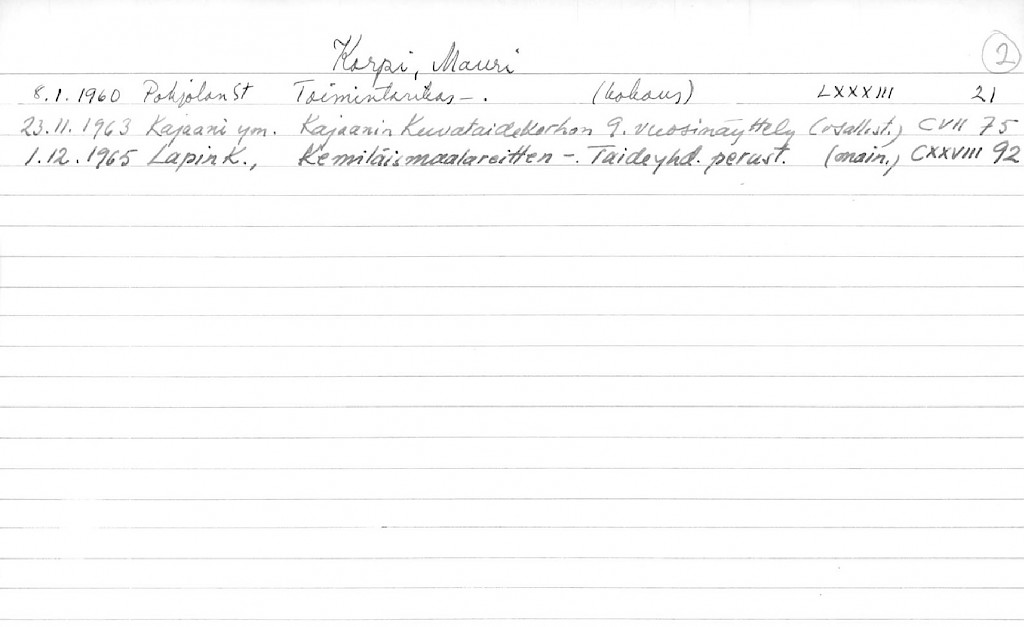 Korpi, Mauri
2
8.1.1960 PohjolanSt Toimintarikas -. (kokous) LXXXIII 21
23.11.1963 Kajaani ym. Kajaanin Kuvataidekerhon 9. vuosinäyttely (osallist.) CVII 75
1.12.1965 Lapin K., Kemiläismaalareitten -. Taideyhd. perust. (main.) CXXVIII 92